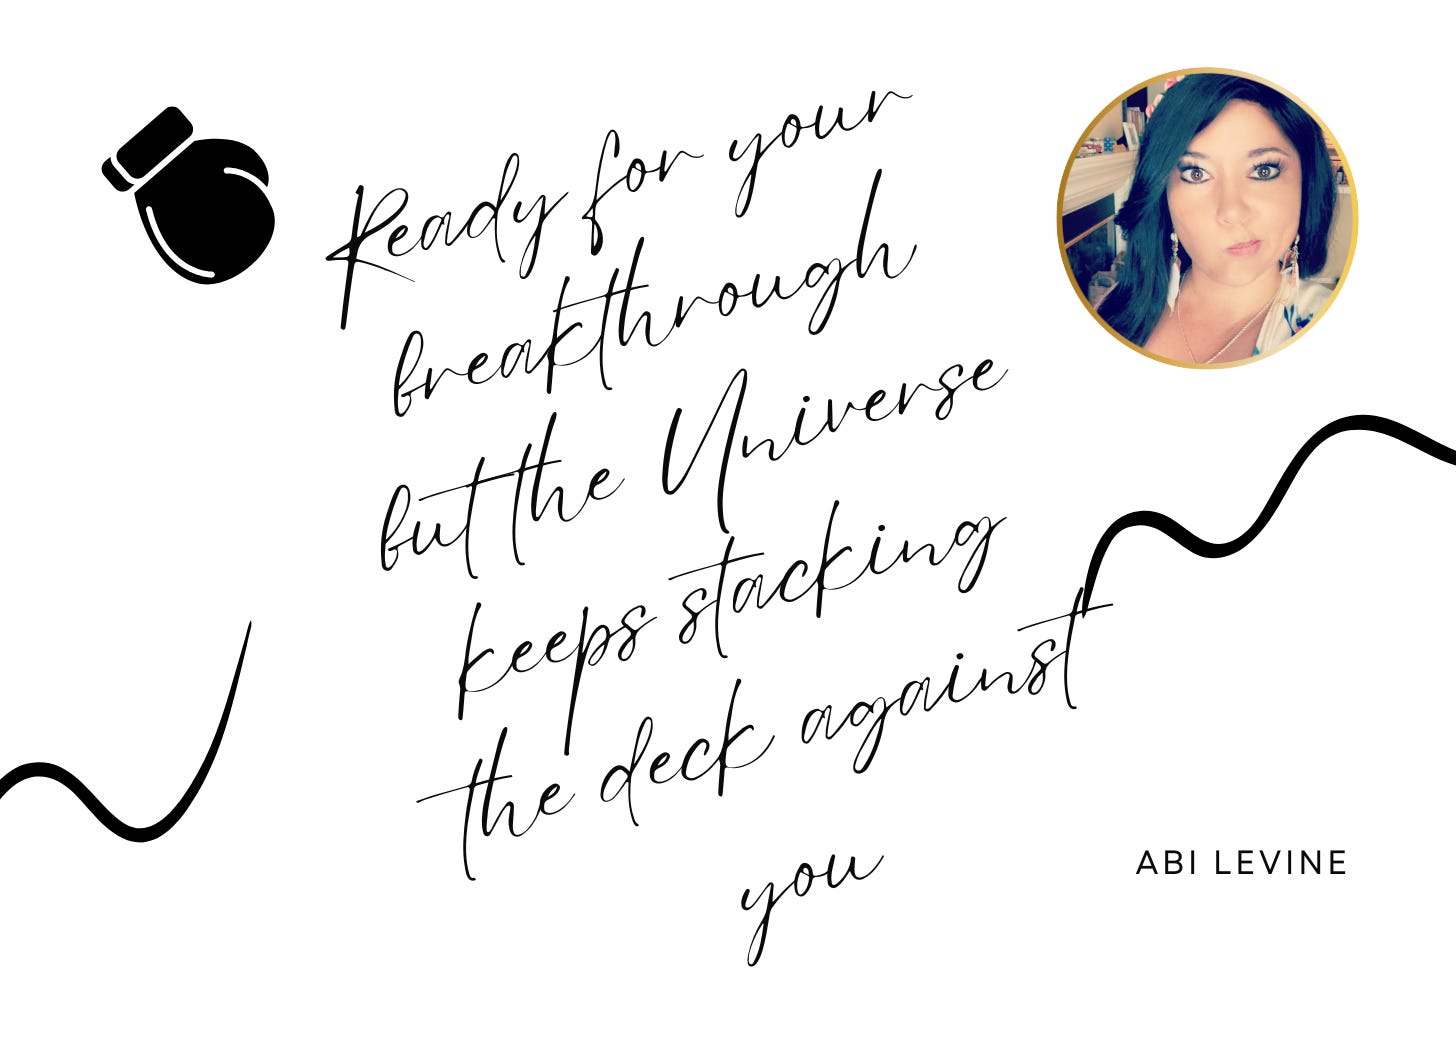 Ready for your
breakthrough
but the Universe
keeps stacking
the deck against
you
ABI LEVINE